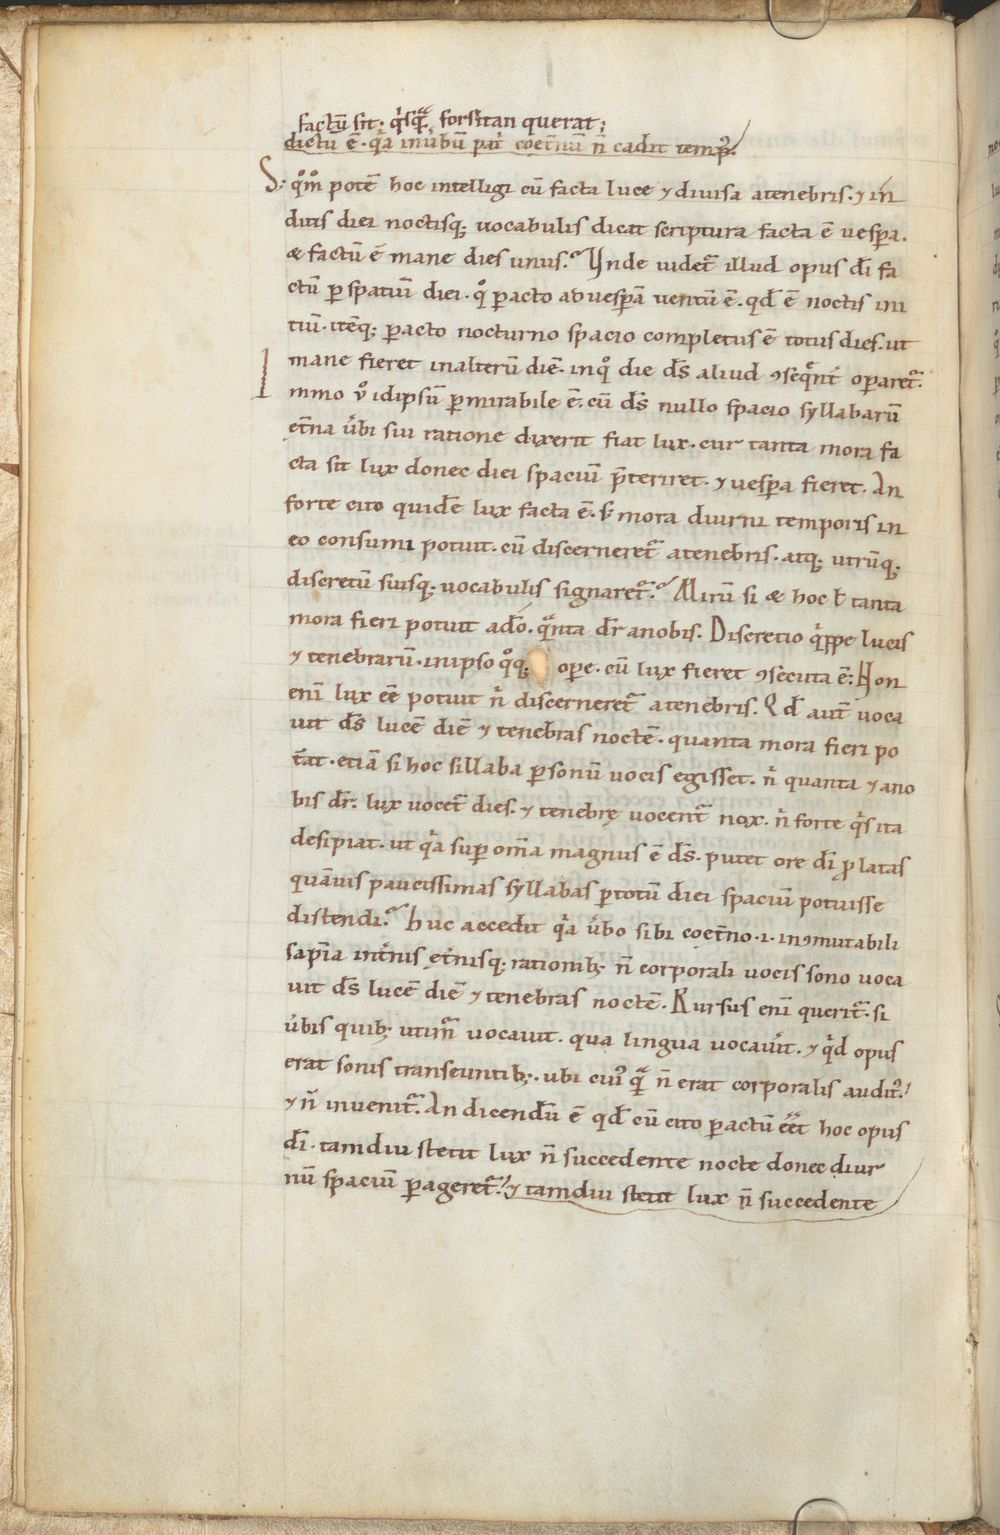 factū sit. q̇sq̄ᷓ. forsitan querat;
dictū ē. q̇a inūbū pat̄ coet̄nū n̄ cadit temp᷒.
S; qm̊o potē hoc intelligi cū facta luce ⁊ diuisa atenebris. ⁊ in
ditis diei noctisq; uocabulis dicat scriptura facta ē uesp̱a.
& factū ē mane dies unus.᷉ Vnde uidet᷒ illud opus dī fa
ctū p̱ spatiū diei. qͦ p̱acto ad uesp̱ā uentū ē. qd̄ ē noctis ini
tiū. itēq; p̱acto nocturno spacio completus ē totus dies. ut
mane fieret inalterū diē. inqͦ die dс̄ aliud ꝯseq̄nt̄ op̱aret᷒.
Immo uͦ idipsū p̱mirabile ē. cū ds̄ nullo spacio syllabarū
et̄na u̇bi sui ratione dixerit fiat lux. cur tanta mora fa
cta sit lux donec diei spaciū p̄teriret. ⁊ uesp̱a fieret. An
forte cito quidē lux facta ē. s; mora diurni temporis in
eo consumi potuit. cū discerneret᷒ atenebris. atq; utrūq;
discretū suisq; uocabulis signaret᷒.᷉ Mirū si & hoc t̄ tanta
mora fieri potuit adō. q̄ᷓnta dr̄ anobis. Discretio q̇ppe lucis
⁊ tenebrarū. inipso qͦq; op̱e. cū lux fieret ꝯsecuta ē. Non
enī lux eē potuit n̊ discerneret᷒ atenebris. Qd̄ aut̄ uoca
uit ds̄ lucē diē ⁊ tenebras noctē. quanta mora fieri po
t̄at. etiā si hoc sillaba p̱sonū uocis egisset. n̊ quanta ⁊ ano
bis dr̄. lux uocet᷒ dies. ⁊ tenebrę uocent᷒ nox. n̊ forte q̇s ita
desipiat. ut q̇a sup̱ om̄a magnus ē ds̄. putet ore dī ꝓlatas
quāuis paucissimas syllabas p̱totū diei spaciū potuisse
distendi.᷉ Huc accedit q̇a u̇bo sibi coet̄no .i. inꝯmutabili
sapīa int̄nis et̄nisq; rationib; n̄ corporali uocis sono uoca
uit ds̄ lucē diē ⁊ tenebras noctē. Rursus enī querit᷒. si
u̇bis quib; utim᷒ uocauit. qua lingua uocauīt. ⁊ q̇d opus
erat sonis transeuntib;. ubi cui᷒ q̄ᷓ n̄ erat corporalis audit᷒.
⁊ n̄ inuenit᷒. An dicendū ē qd̄ cū cito p̱actū eēt hoc opus
dī. tamdiu stetit lux n̄ succedente nocte donec diur
nū spaciū p̱ageret᷒. ⁊ tamdiu stetit lux n̄ succedente